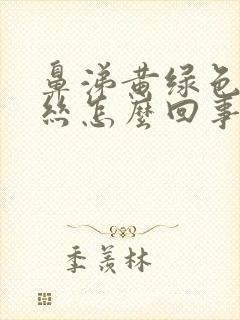 鼻涕黄绿色
丝怎麽回事
季羡林